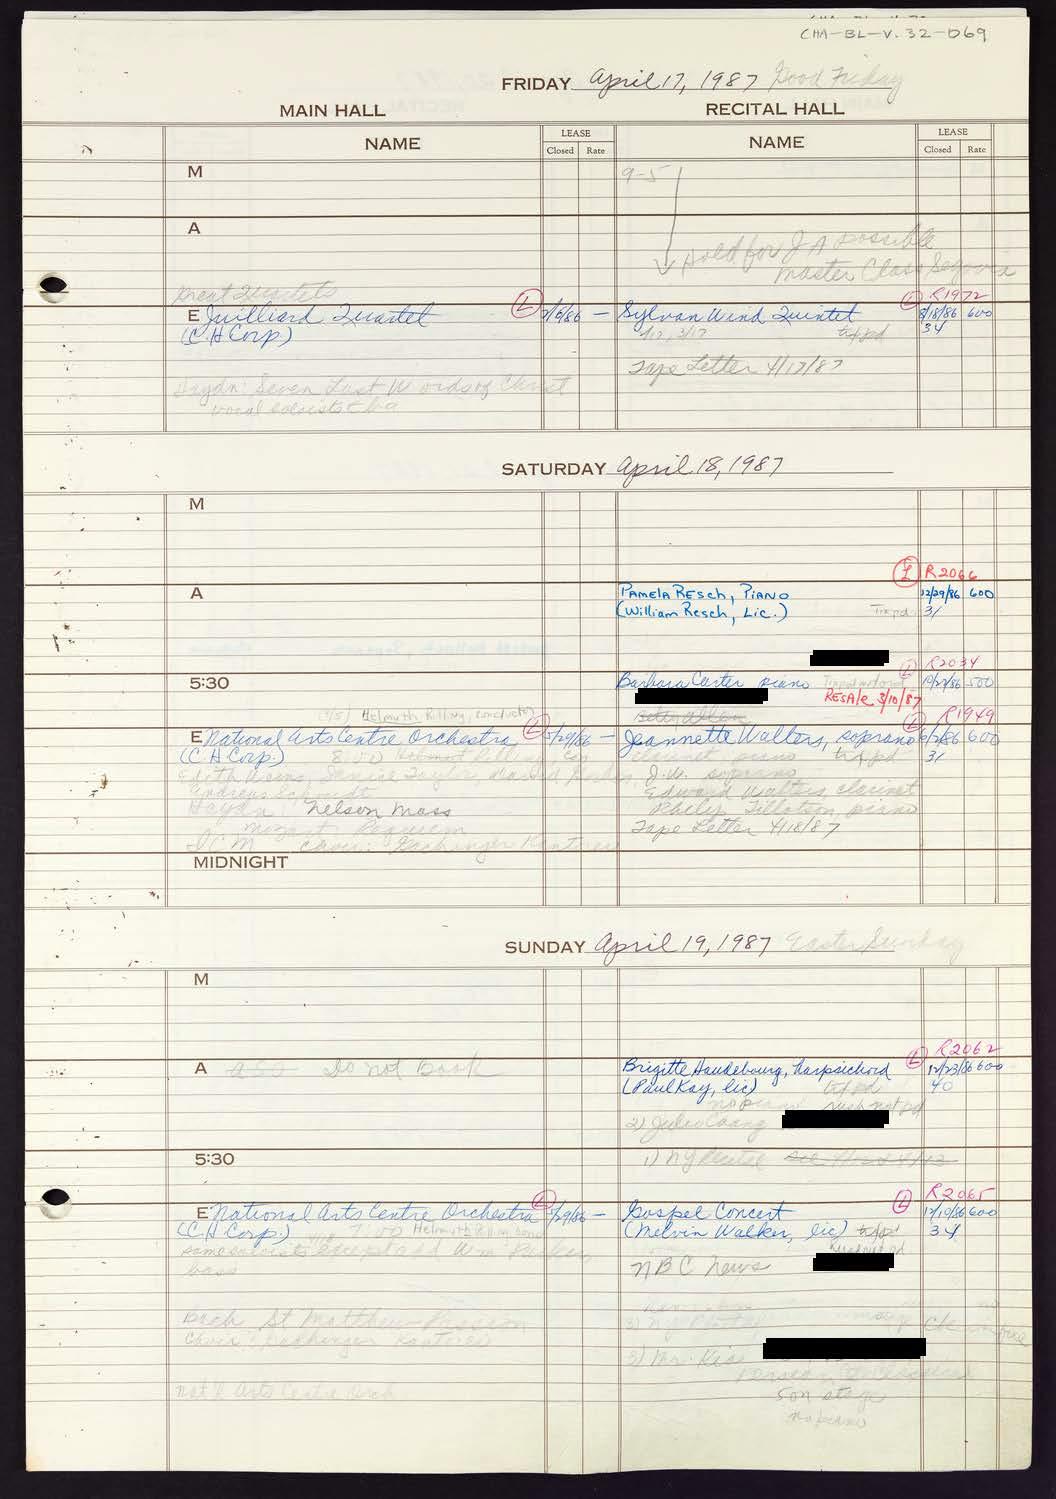 CHA-BL-V.32-069
FRIDAY April 17, 1987 Good Friday
MAIN HALL RECITAL HALL
NAME LEASE Closed Rate NAME LEASE Closed Rate
M 9-5
A
Hold for J A possible
Master Class Segovia
Great Quartets
L R1972
E Juilliard Quartet L — Sylvan Wind Quintet 8/18/86 600
(C.H Corp) 1/12, 3/17 tix pd 34
Tape Letter 4/17/87
Haydn: Seven Last Words of Christ
vocal soloists
SATURDAY April 18, 1987
M
L R2066
A Pamela Resch, Piano 12/29/86 600
(William Resch, Lic.) Tix pd. 31
L R2034
5:30 Barbara Carter piano 10/27/86 500
RESAle 3/10/87
Helmuth Rilling, conductor
L R1949
E National Arts Centre Orchestra L 5/29/86 — Jeannette Walters, soprano 600
(C H Corp.) 8:00 tix pd 31
J.W. soprano
Edith Wiens, Janice Taylor,
Andreas Schmidt Edward Walters, clarinet
Haydn: Nelson Mass Tillotson, piano
Mozart Requiem Tape Letter 4/18/87
choir: Gachinger Kantorei
MIDNIGHT
SUNDAY April 19, 1987 Easter Sunday
M
L R2062
A ASO Do not Book Brigitte Haudebourg, harpsichord 12/23/86 600
(Paul Kay, lic) tix pd 40
no piano
2) Julie
5:30 1) NY Recital
L R2065
E National Arts Centre Orchestra L 5/29/86 — Gospel Concert L 12/10/86 600
(C H Corp.) 7:00 Helmuth Rilling cond (Melvin Walker, lic) tix pd 34
same soloists except add Wm Parker,
bass
NBC News
Bach St Matthew Passion
Choir: Gachinger Kantorei
3) Mr. Kiss
Nat'l Arts Centre Orch
5 on stage
no piano